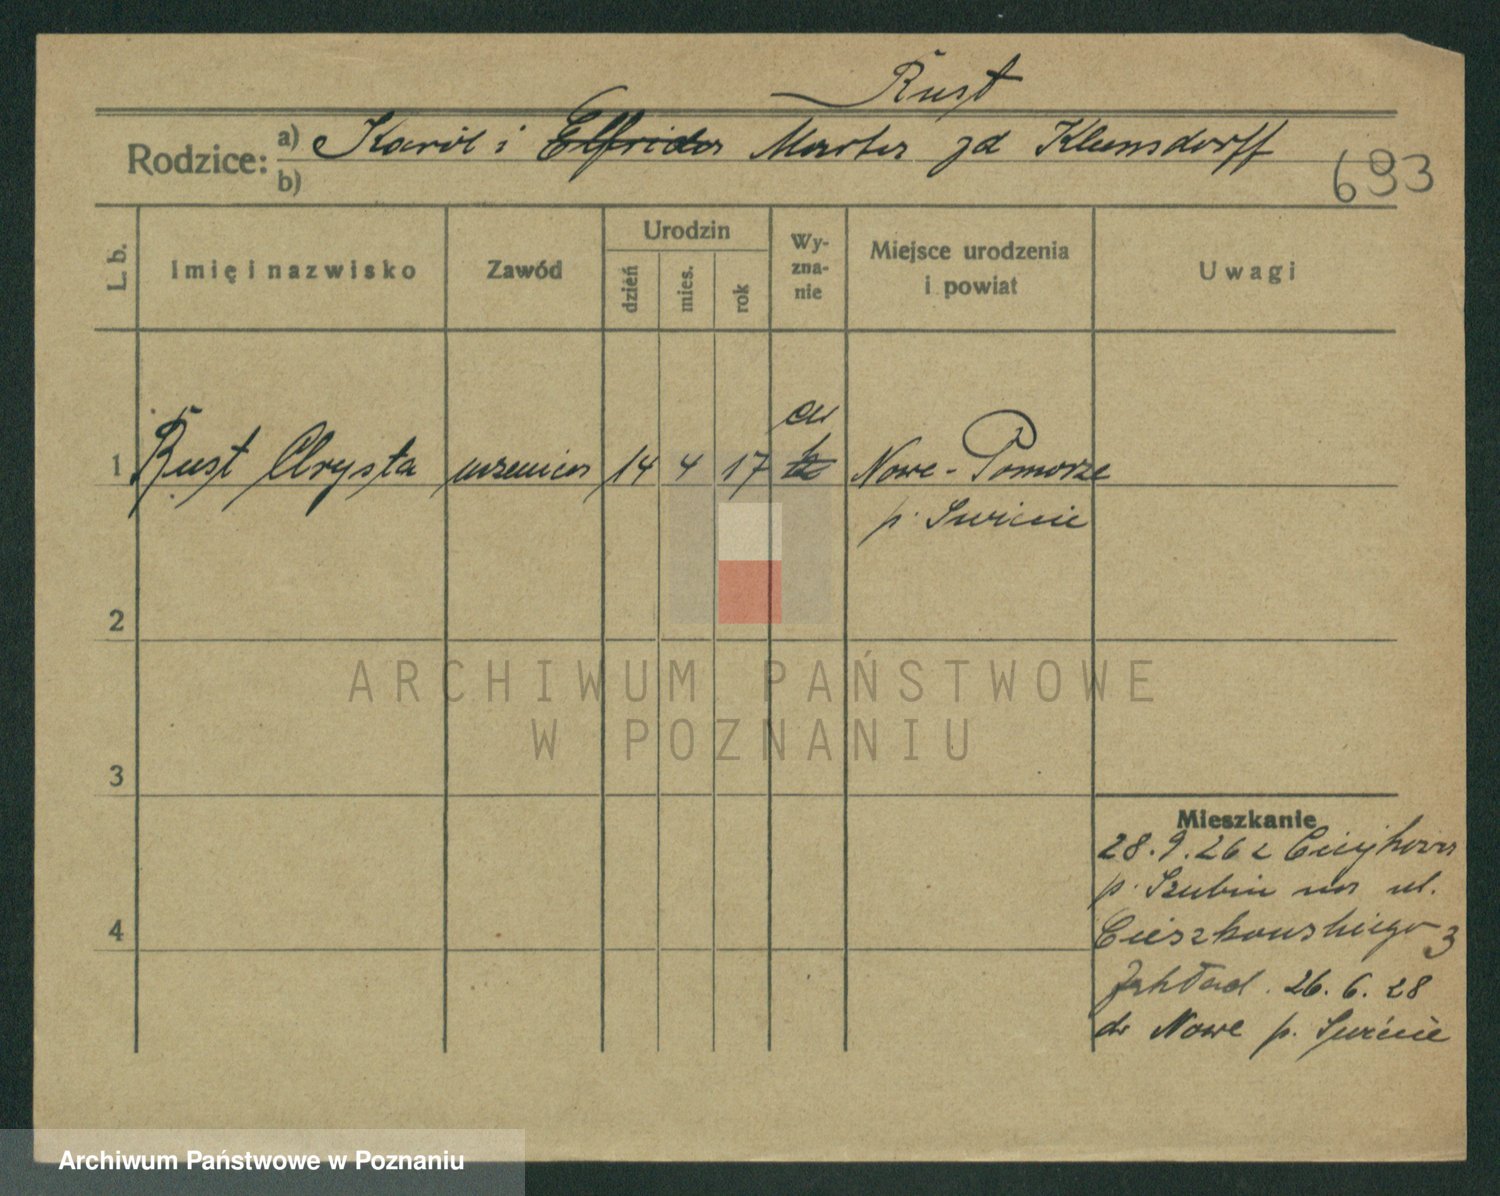 Rust
Rodzice: a) Karol i Elfrida Marta zd Klemsdorff
b)
693
L. b.
Imię i nazwisko
Zawód
Urodzin
dzień
mies.
rok
Wy-
zna-
nie
Miejsce urodzenia
i powiat
Uwagi
ew
1 Rust Chrysta uczenica 14 4 17 Nowe - Pomorze
p. Swiecie
2
ARCHIWUM PAŃSTWOWE
W POZNANIU
3
Mieszkanie
28.9.26 z
p. Szubin na ul.
Cieszkowskiego 3
Zakład. 26.6.28
do Nowe p. Swiecie
4
Archiwum Państwowe w Poznaniu